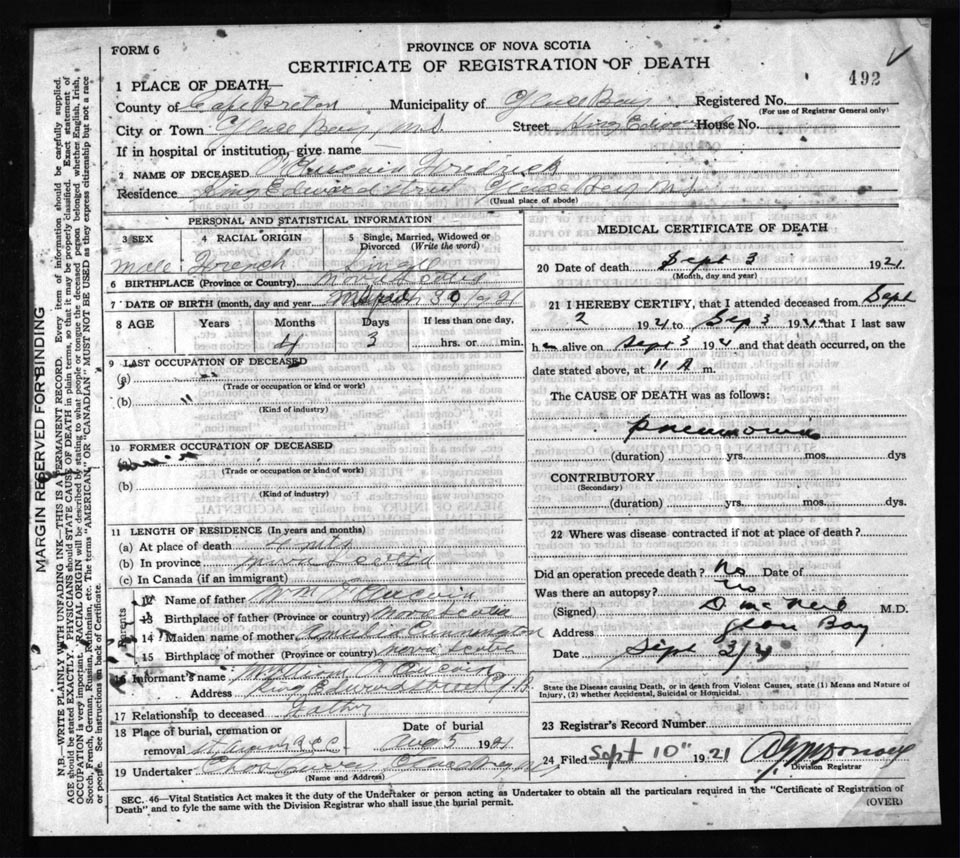 FORM 6
PROVINCE OF NOVA SCOTIA
CERTIFICATE OF REGISTRATION OF DEATH
492
1 PLACE OF DEATH
County of Cape Breton Municipality of Glace Bay Registered No.
(For use of Registrar General only)
City or Town Glace Bay, N.S Street King Edward House No.
If in hospital or institution, give name
2 NAME OF DECEASED
Residence King Edward Street Glace Bay N.S.
(Usual place of abode)
PERSONAL AND STATISTICAL INFORMATION
3 SEX 4 RACIAL ORIGIN 5 Single, Married, Widowed or Divorced (Write the word)
Male French Single
6 BIRTHPLACE (Province or Country) Nova Scotia
7 DATE OF BIRTH (month, day and year 30 1921
8 AGE Years Months Days If less than one day,
4 3 hrs. or min.
9 LAST OCCUPATION OF DECEASED
(a)
(Trade or occupation or kind of work)
(b) "
(Kind of industry)
10 FORMER OCCUPATION OF DECEASED
(Trade or occupation or kind of work)
(b)
(Kind of industry)
11 LENGTH OF RESIDENCE (In years and months)
(a) At place of death
(b) In province
(c) In Canada (if an immigrant)
Parents
12 Name of father Wm Aucoin
13 Birthplace of father (Province or country) Nova Scotia
14 Maiden name of mother
15 Birthplace of mother (Province or country) Nova Scotia
16 Informant's name William Aucoin
Address King Edward Street G.B.
17 Relationship to deceased Father
18 Place of burial, cremation or removal Date of burial
5 1921
19 Undertaker
(Name and Address)
MEDICAL CERTIFICATE OF DEATH
20 Date of death Sept 3 1921
(Month, day and year)
21 I HEREBY CERTIFY, that I attended deceased from Sept
2 1921 to Sep 3 1921 that I last saw
h alive on Sept 3 1921 and that death occurred, on the
date stated above, at 11 A m.
The CAUSE OF DEATH was as follows:
pneumonia
(duration) yrs. mos. dys
CONTRIBUTORY
(Secondary)
(duration) yrs. mos. dys.
22 Where was disease contracted if not at place of death?
Did an operation precede death? No Date of
Was there an autopsy? No
(Signed) D. McNeil M.D.
Address Glace Bay
Date Sept 3/21
State the Disease causing Death, or in death from Violent Causes, state (1) Means and Nature of
Injury, (2) whether Accidental, Suicidal or Homicidal.
23 Registrar's Record Number
24 Filed Sept 10" 1921
Division Registrar
SEC. 46—Vital Statistics Act makes it the duty of the Undertaker or person acting as Undertaker to obtain all the particulars required in the "Certificate of Registration of
Death" and to fyle the same with the Division Registrar who shall issue the burial permit.
(OVER)
MARGIN RESERVED FOR BINDING
N.B. WRITE PLAINLY WITH UNFADING INK—THIS IS A PERMANENT RECORD. Every item of information should be carefully supplied.
AGE should be stated EXACTLY. PHYSICIANS should STATE CAUSE OF DEATH in plain terms, so that it may be properly classified. Exact statement of
OCCUPATION is very important. RACIAL ORIGIN will be described by stating to what people or tongue the deceased person belonged whether English, Irish,
Scotch, French, German, Russian, Ruthenian, etc. The terms "AMERICAN" OR "CANADIAN" MUST NOT BE USED as they express citizenship but not a race
or people. See instructions on back of Certificate.